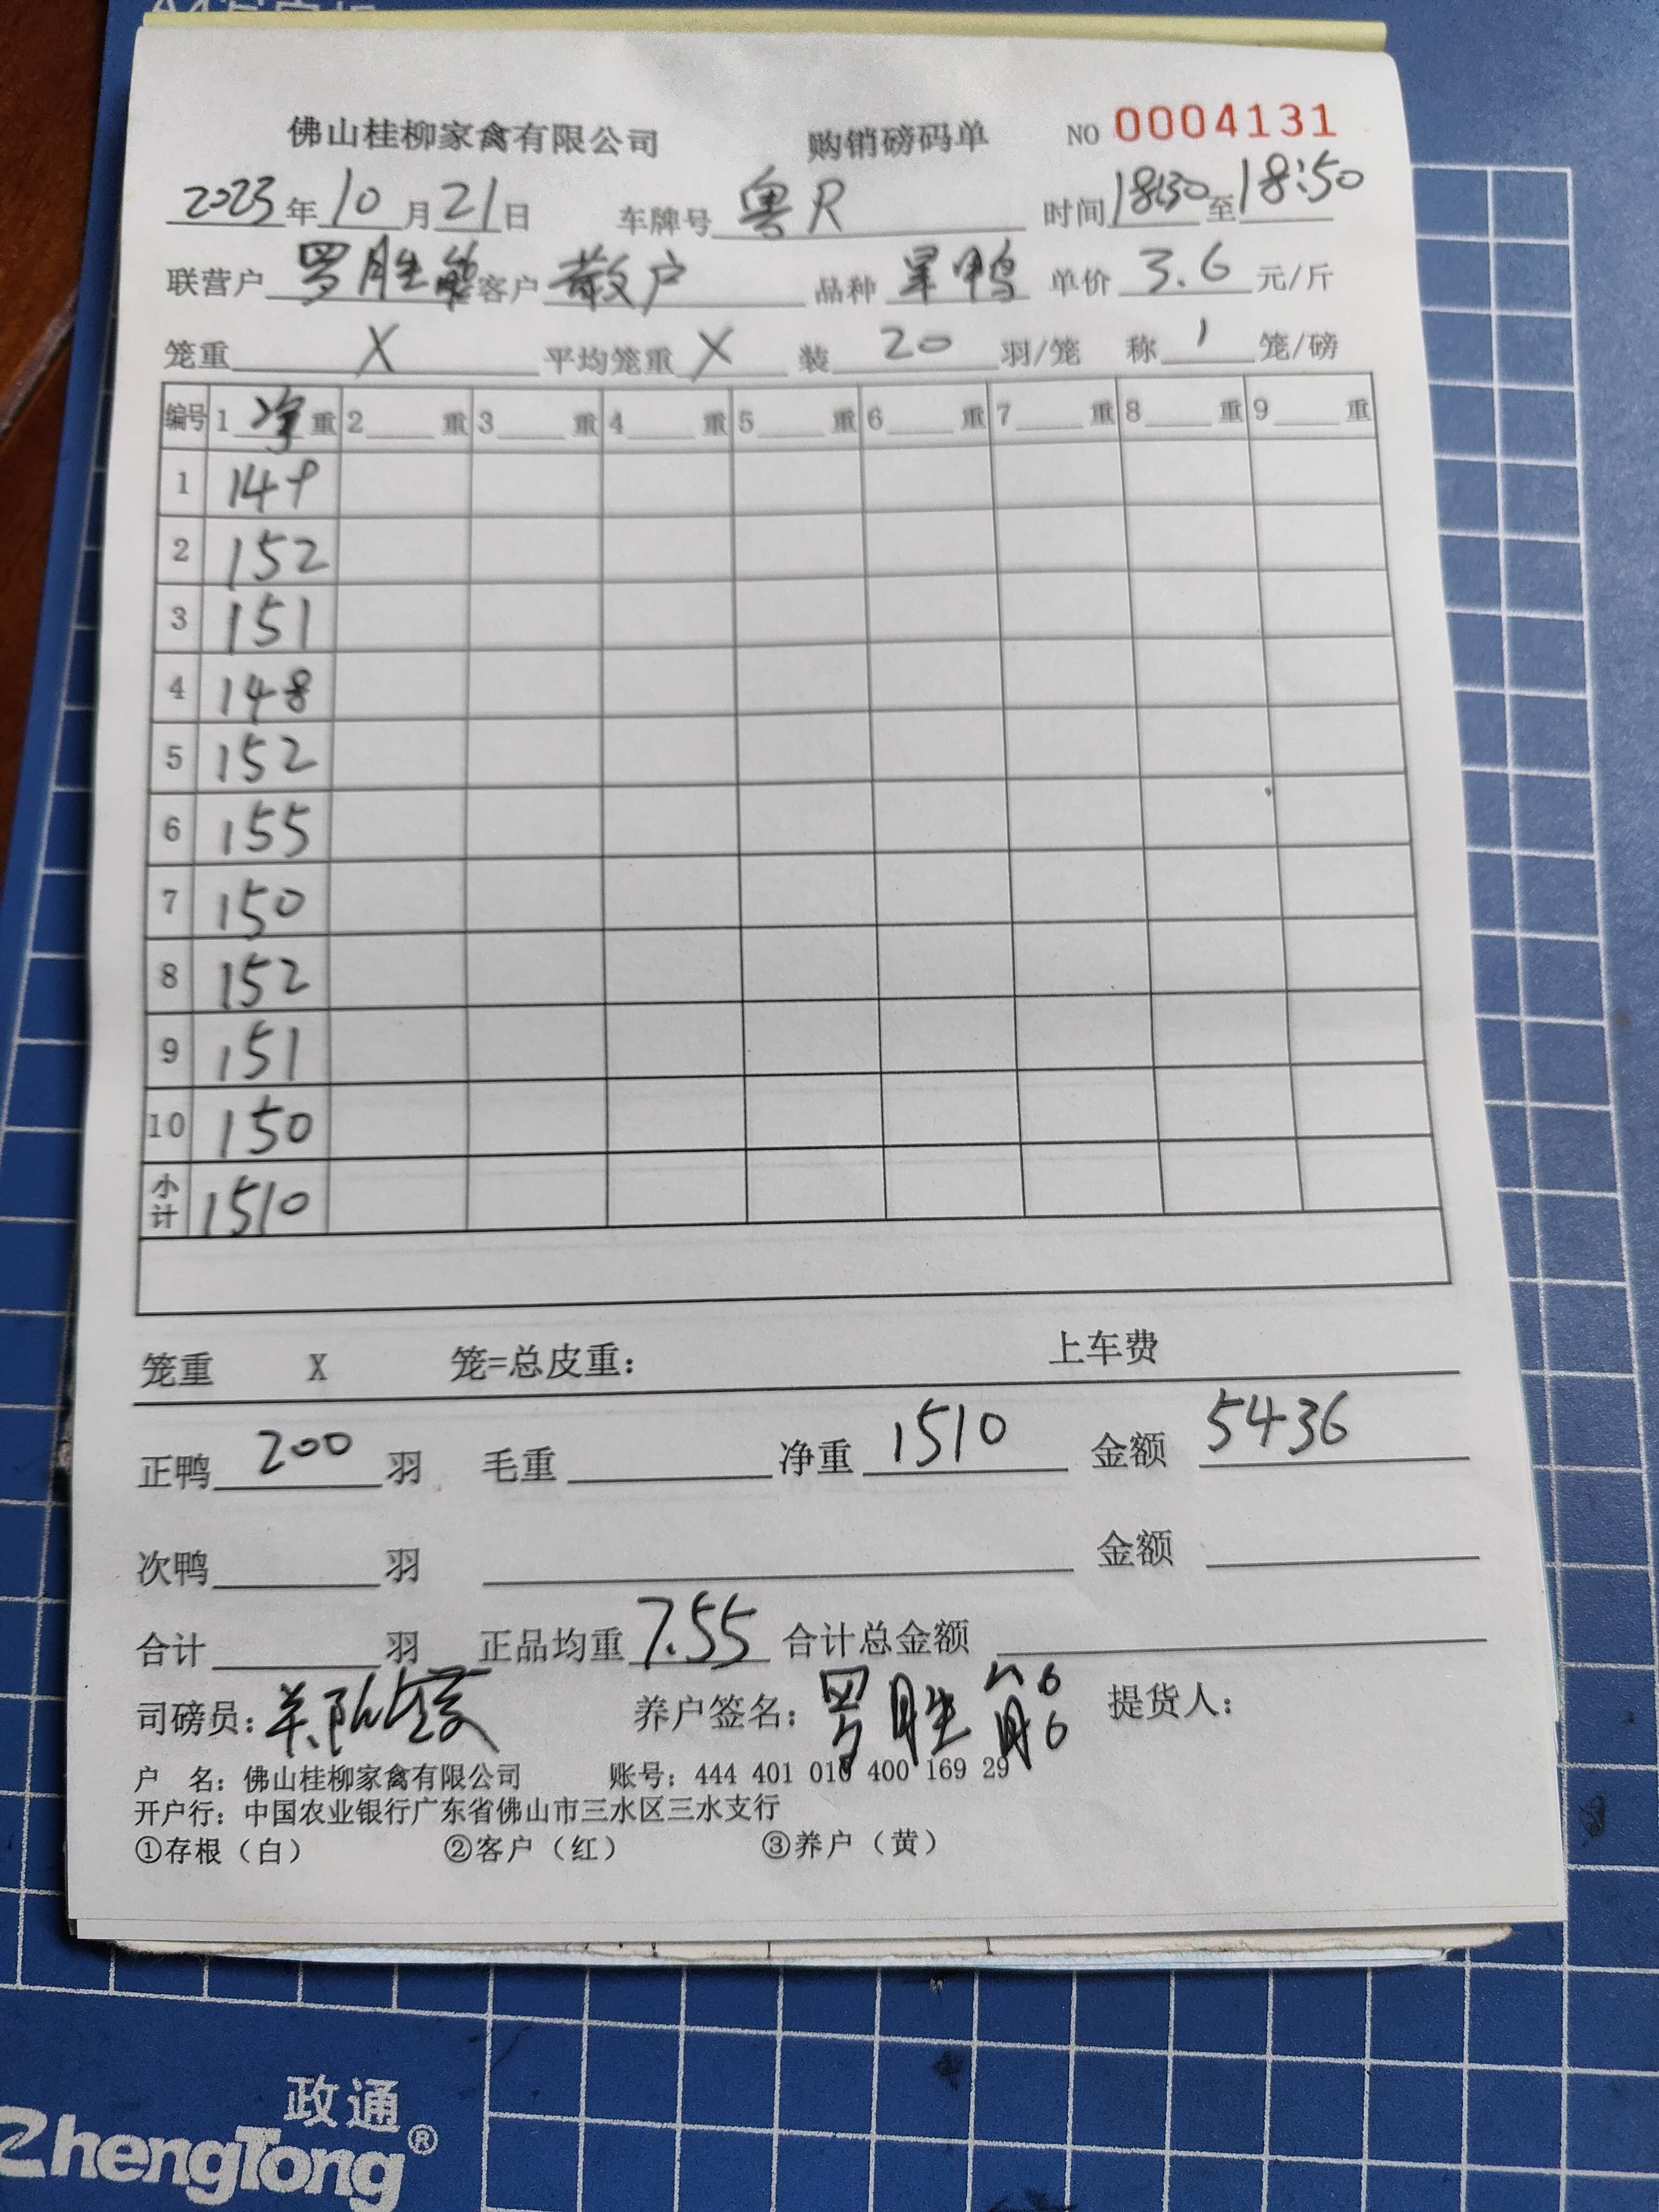 佛山桂柳家禽有限公司 购销磅码单 NO 0004131
2023年10月21日 车牌号 粤R 时间18:30至18:50
联营户 罗胜能 客户 散户 品种 旱鸭 单价 3.6 元/斤
笼重 X 平均笼重 X 装 20 羽/笼 称 1 笼/磅
编号 1 净 重 2 重 3 重 4 重 5 重 6 重 7 重 8 重 9 重
1 149
2 152
3 151
4 148
5 152
6 155
7 150
8 152
9 151
10 150
小计 1510
笼重 X 笼=总皮重: 上车费
正鸭 200 羽 毛重 净重 1510 金额 5436
次鸭 羽 金额
合计 羽 正品均重 7.55 合计总金额
司磅员: 养户签名: 罗胜能 提货人:
户 名: 佛山桂柳家禽有限公司 账号: 444 401 010 400 169 29
开户行: 中国农业银行广东省佛山市三水区三水支行
①存根(白) ②客户(红) ③养户(黄)
政通
ZhengTong®